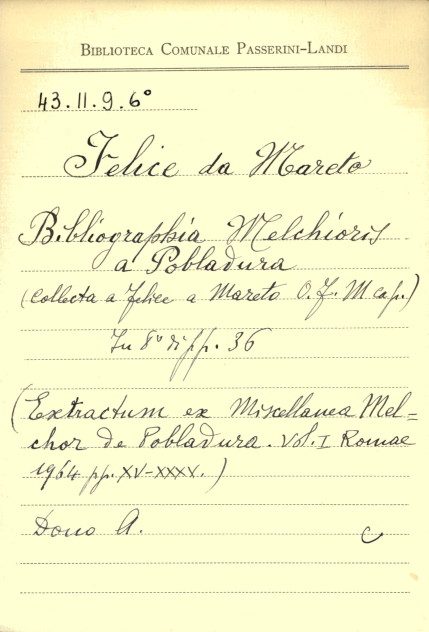 BIBLIOTECA COMUNALE PASSERINI-LANDI
43.II.9.6°
Felice da Mareto
Bibliographia Melchioris
a Pobladura
(Collecta a Felice a Mareto O.F.M cap.)
In 8° di pp. 36
(Extractum ex Miscellanea Mel=
chor de Pobladura. Vol. I Romae
1964 pp. XV-XXXV.)
Dono A.
C